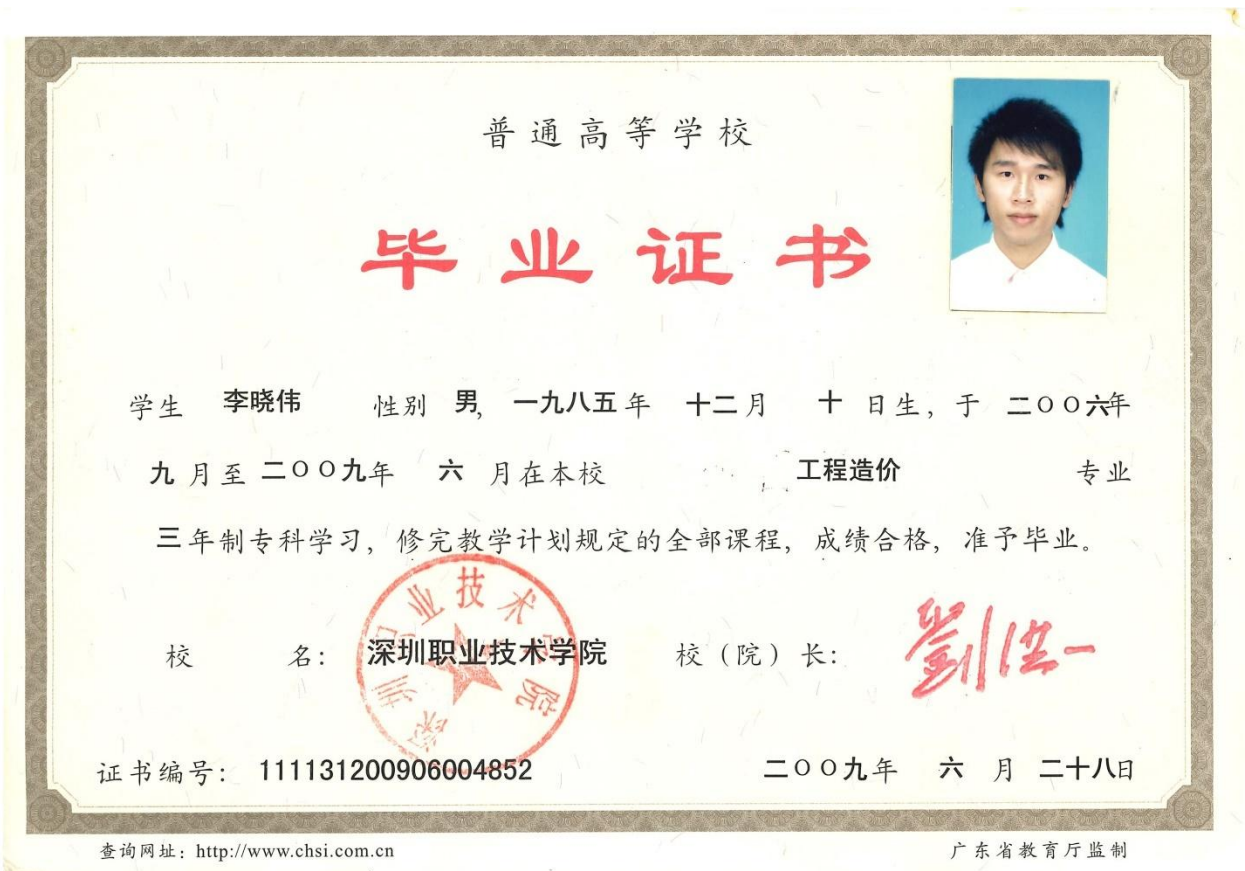 普通高等学校
毕业证书
学生 李晓伟 性别 男, 一九八五年 十二月 十 日生, 于 二〇〇六年
九 月至 二〇〇九年 六 月在本校 工程造价 专业
三年制专科学习, 修完教学计划规定的全部课程, 成绩合格, 准予毕业。
校 名: 深圳职业技术学院 校(院)长: 劉洪一
深圳职业技术学院
证书编号: 111131200906004852 二〇〇九年 六 月 二十八日
查询网址: http://www.chsi.com.cn 广东省教育厅监制